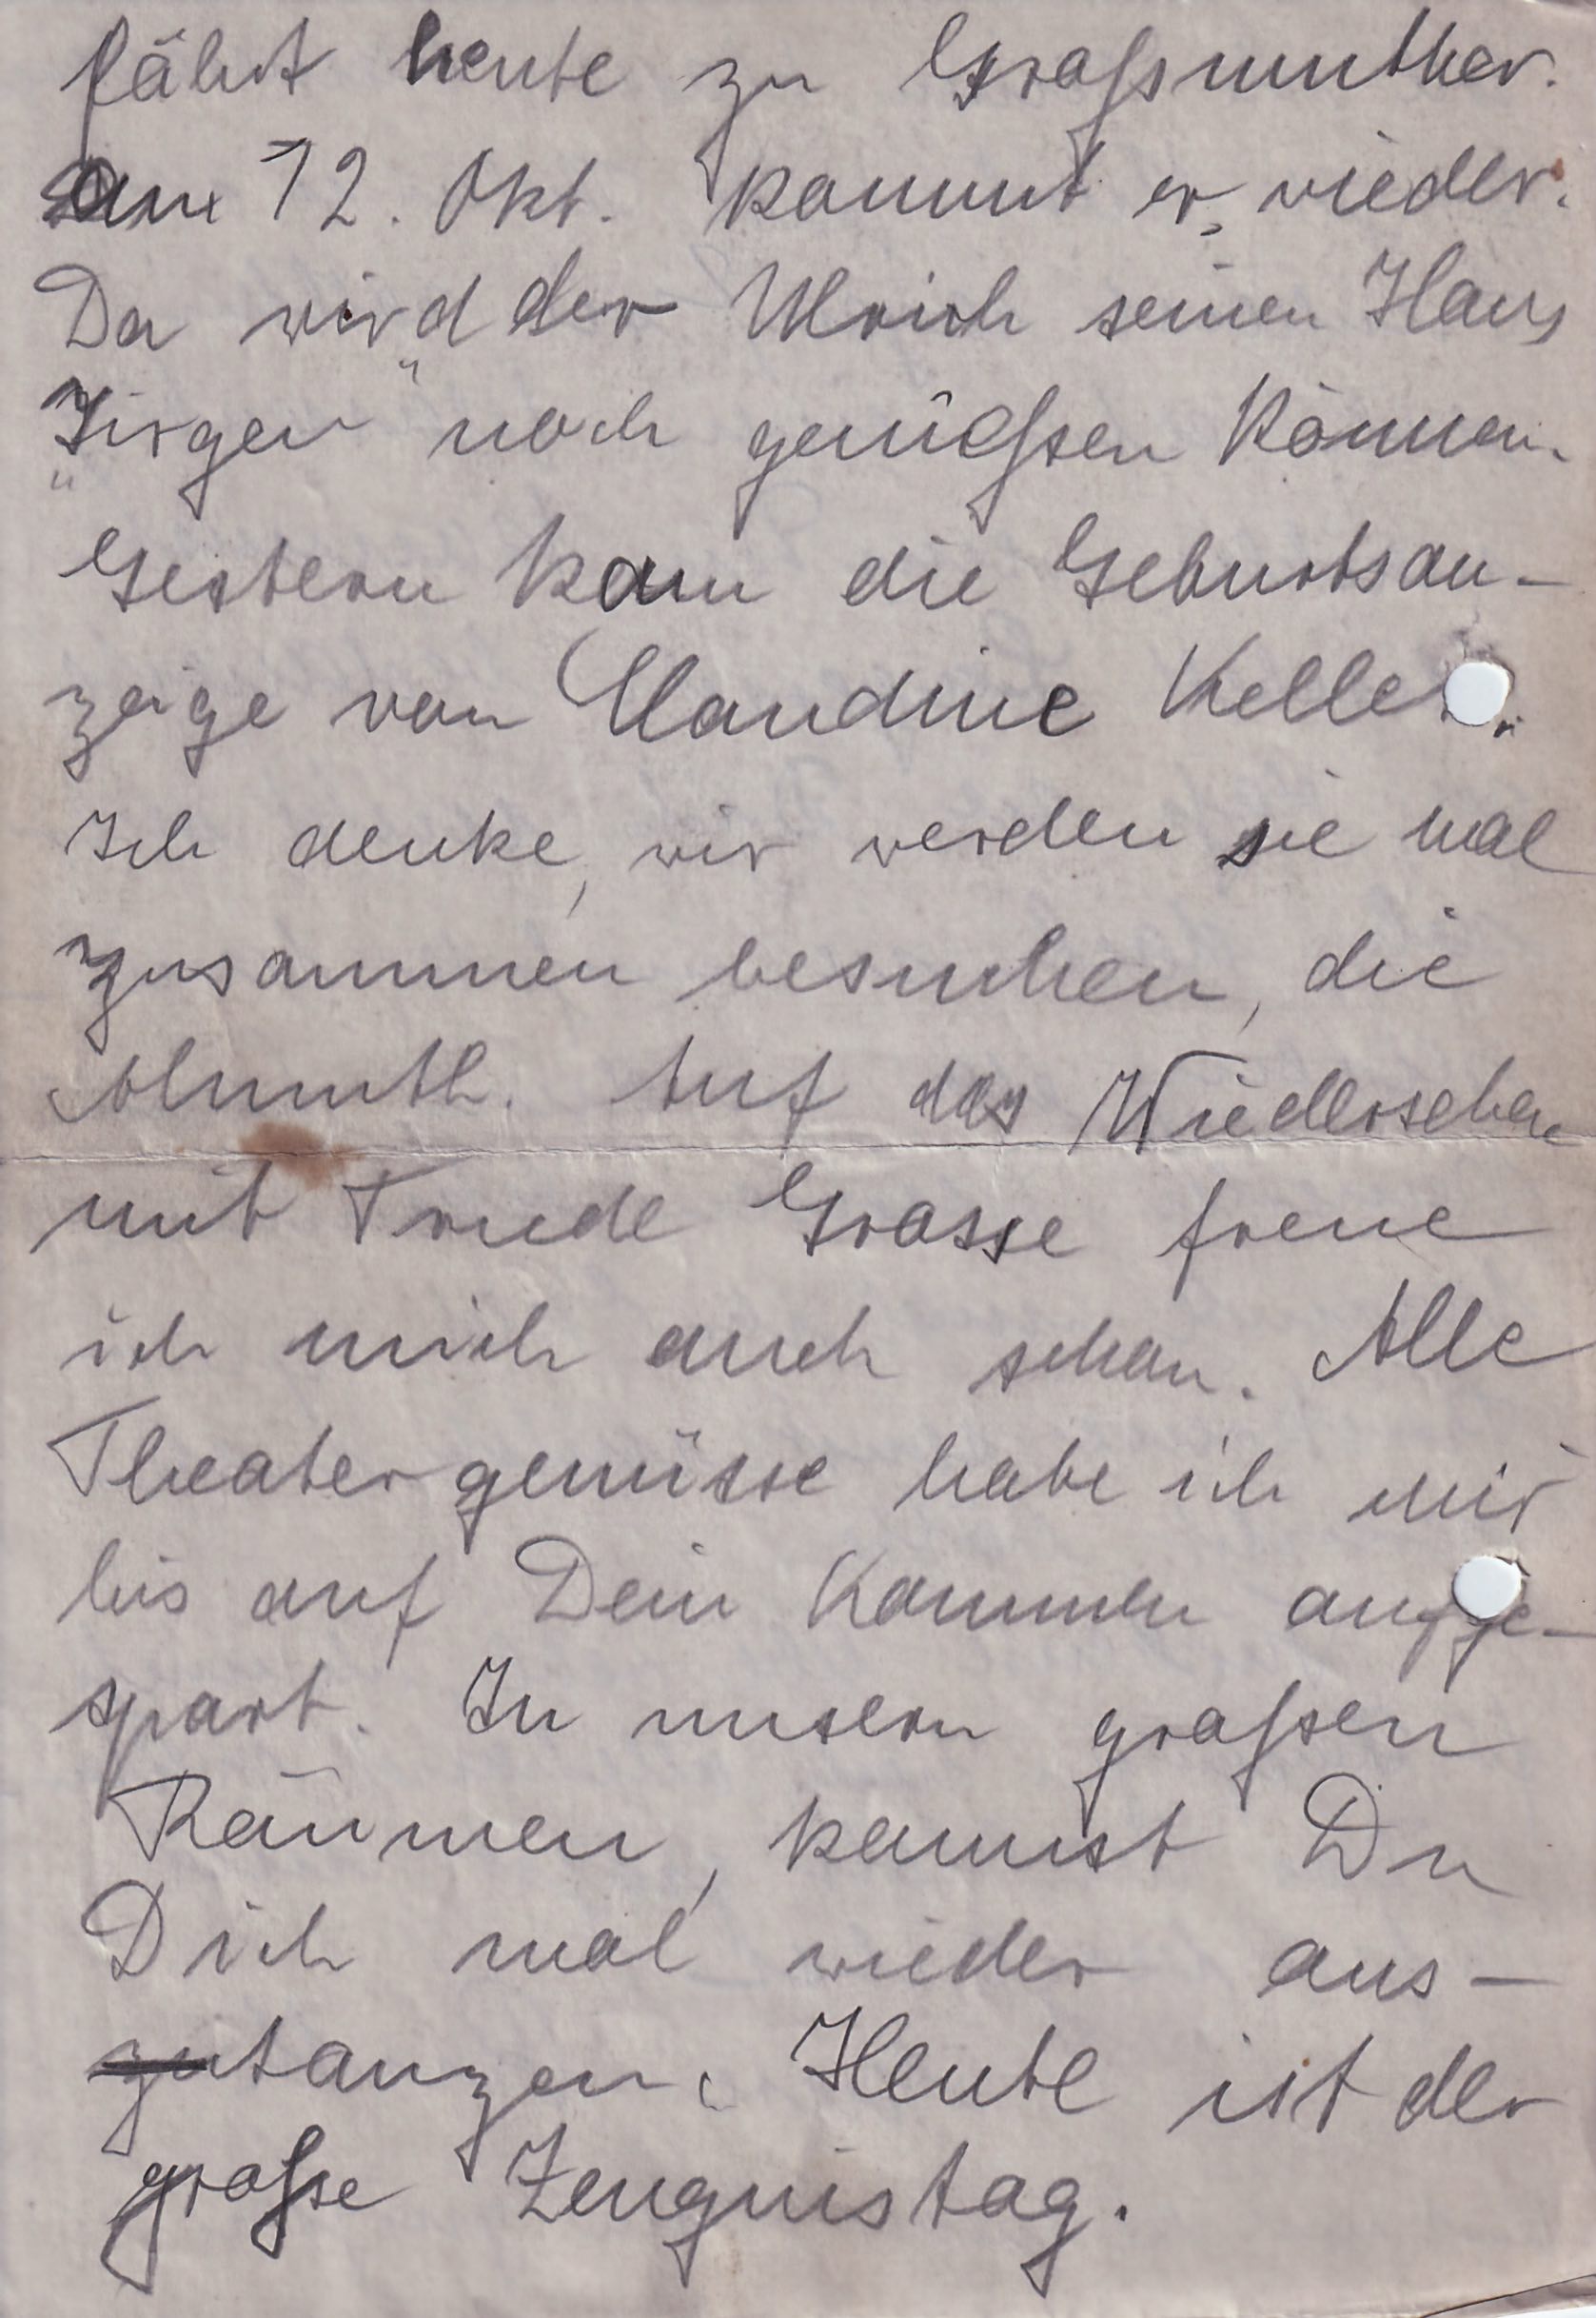 fährt heute zu Grossmutther.
Am 12. Okt. kommt er wieder.
Da wird der Ulrich seinen „Hans
Jürgen" noch geniessen können.
Gestern kam die Geburtsan-
zeige von Claudine Keller.
Ich denke, wir werden sie mal
zusammen besuchen, die
Almuth. Auf das Wiedersehen
mit Trude Grasse freue
ich mich auch schon. Alle
Theatergenüsse habe ich mir
bis auf Dein Kommen aufge-
spart. In unsern grossen
Räumen, kannst Du
Dich mal wieder aus-
tanzen. Heute ist der
grosse Zeugnistag.